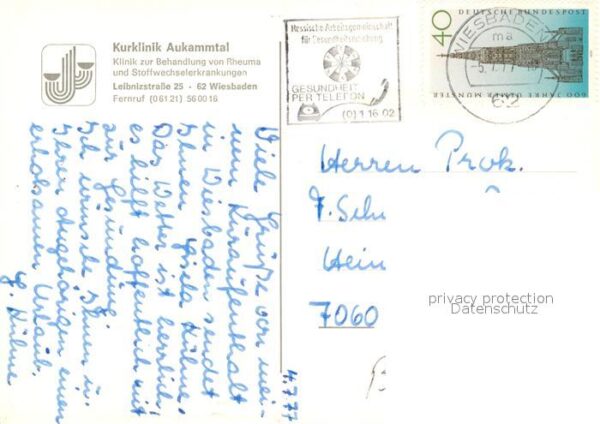 Kurklinik Aukammtal
Klinik zur Behandlung von Rheuma
und Stoffwechselerkrankungen
Leibnizstraße 25 · 62 Wiesbaden
Fernruf (0 61 21) 56 00 16
Hessische Arbeitsgemeinschaft
für Gesundheitserziehung
GESUNDHEIT
PER TELEFON
(0) 1 16 02
WIESBADEN
ma
-5.7.77
62
40
DEUTSCHE BUNDESPOST
600 JAHRE ULMER MÜNSTER
Viele Grüße von mei-
nem Kuraufenthalt
in Wiesbaden sendet
Ihnen Hühne.
Das Wetter ist herrlich,
es hilft hoffentlich mit
zur Gesundung.
Ich wünsche Ihnen u.
Ihren Angehörigen einen
erholsamen Urlaub.
G. Hühne
4.7.77
Herren Prok.
F.
7060
privacy protection
Datenschutz